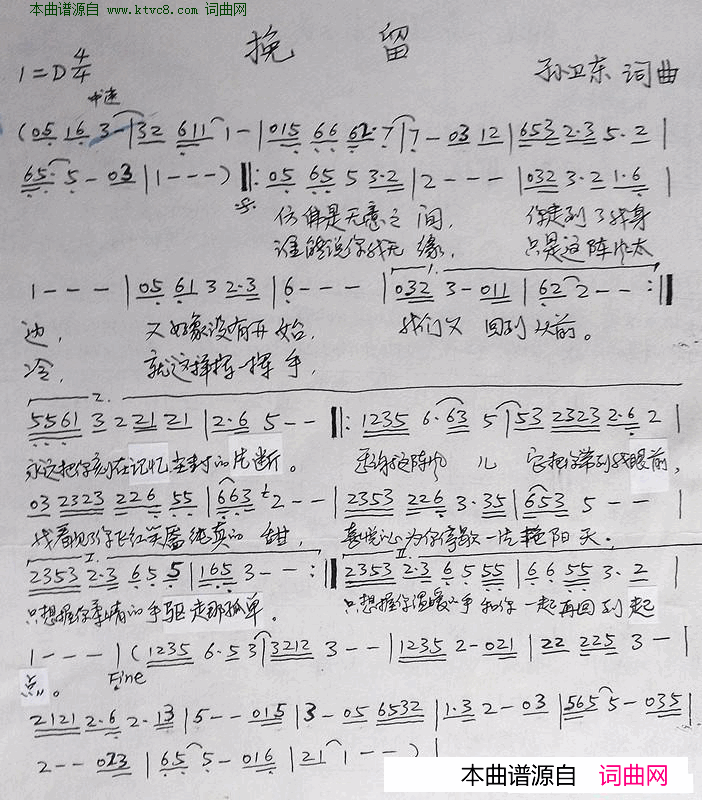 本曲谱源自 www.ktvc8.com 词曲网
挽 留
1=D 4/4
孙卫东 词曲
中速
(05 16 3-|32 611 1-|015 66 62·7|7-03 12|653 2·3 5·2|
65·5-03|1---)‖:05 65 5 3·2|2---|032 3·2 1·6|
仿佛是无意之间, 你走到了我身
谁能说你我无缘, 只是这阵风太
1---|05 61 3 2·3|6---|032 3-011|62 2--:‖
边, 又好象没有开始, 我们又回到从前。
冷, 就这样挥一挥手,
2.
5561 3 2 21 21|2·6 5--‖:1235 6·63 5|53 2323 2·6 2|
永远把你刻在记忆尘封的片断。 它把你带到我眼前,
03 2323 226 55|663 2--|2353 226 3·35|653 5--|
我看见了你飞红笑靥纯真的甜, 喜悦 为你停歇一片艳阳天。
I. II.
2353 2·3 65 5|165 3--:‖2353 2·3 65 55|66 55 3·2|
只想握你 的手驱走那孤单。 只想握你温暖 手和你一起再回到起
1---|(1235 6·5 3|3212 3--|1235 2-021|22 225 3-|
点。 Fine
2121 2·6 2·13|5--015|3-05 6532|1·3 2-03|565 5-035|
2--023|65 5-016|21 1--)|
本曲谱源自 词曲网